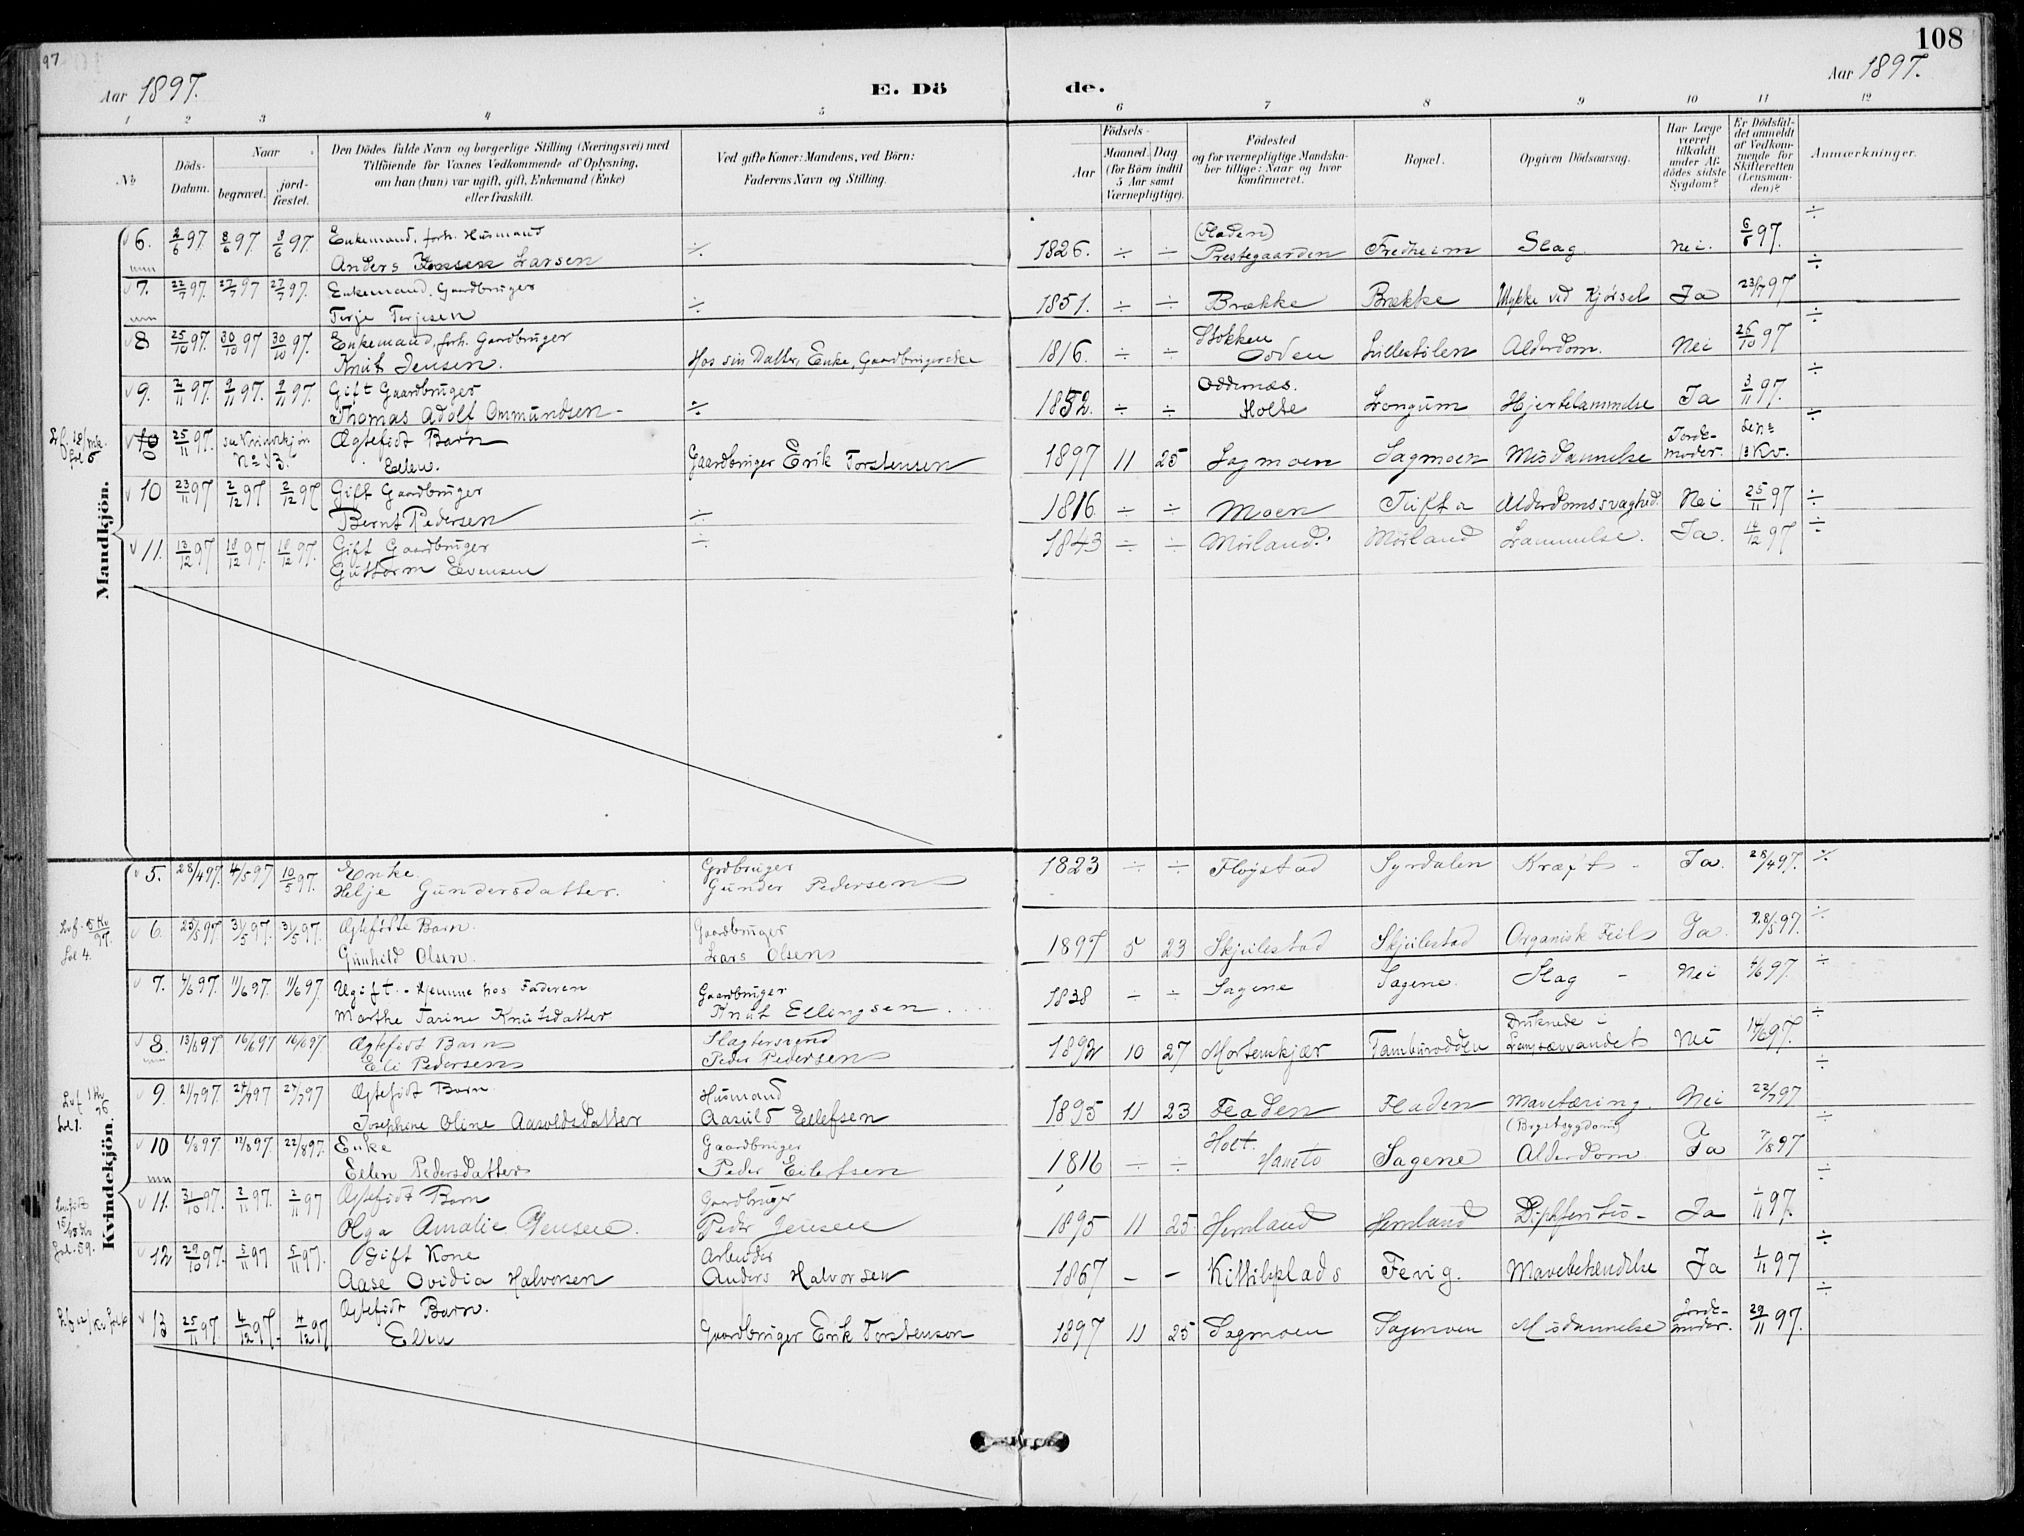 97
108
Aar 1897.
E. Dö
de.
Aar 1897.
1 2 3 4 5 6 7 8 9 10 11 12
No
Döds-Datum.
Naar
begravet.
jordfæstet.
Den Dödes fulde Navn og borgerlige Stilling (Næringsvei) med
Tilföiende for Voxnes Vedkommende af Oplysning,
om han (hun) var ugift, gift, Enkemand (Enke)
eller fraskilt.
Ved gifte Koner: Mandens, ved Börn:
Faderens Navn og Stilling.
Födsels-
Aar
Maaned. Dag
(for Börn indtil
5 Aar samt
Værnepligtige).
Födested
og for værnepligtige Mandska-
ber tillige: Naar og hvor
konfirmeret.
Bopæl.
Opgiven Dödsaarsag.
Har Læge
været
tilkaldt
under Af-
dödes sidste
Sygdom?
Er Dödsfal-
det anmeldt
af Vedkom-
mende for
Skifteretten
(Lensman-
den)?
Anmærkninger.
Mandkjön.
6. 2/6 97. 8/6 97 8/6 97. Enkemand, forh. Husmand ÷ 1826. ÷ ÷ (Fladen) Fredheim Slag. Nei. 6/6 97. ÷
Anders Larsen Prestegaarden
7. 22/7 97. 27/7 97 27/7 97. Enkemand. Gaardbruger ÷ 1851. ÷ ÷ Brække Brække Ulykke ved Kjørsel Ja 23/7 97 ÷
Terje Terjesen
8 25/10 97. 30/10 97 30/10 97. Enkemand, forh. Gaardbruger Hos sin Datter, Enke, Gaardbrugerske 1816. ÷ ÷ Stokken Lillestølen Alderdom. Nei 26/10 97 ÷
Knut Jensen. Odden
9. 2/11 97. 9/11 97. 9/11 97. Gift Gaardbruger ÷ 1852. ÷ ÷ Oddernæs. Longum Hjertelammelse Ja 3/11 97. ÷
Thomas Adolf Ommundsen - Holte
10 25/11 97. se Kvindekjøn No 13. Ægtefødt Barn Gaardbruger Erik Torstensen 1897 11 25 Sagmoen Sagmoen Misdannelse Jorde- moder. 13 Kv. ÷
Ellen.
10 23/11 97 2/12 97 2/12 97 Gift Gaardbruger ÷ 1816 ÷ ÷ Moen Tufta Alderdomssvaghed. Nei 25/11 97 ÷
Bernt Pedersen
11. 13/12 97 18/12 97. 18/12 97. Gift Gaardbruger ÷ 1843 ÷ ÷ Mørland. Mørland Lammelse. Ja. 14/12 97 ÷
Guttorm Evensen
Kvindekjön.
5. 28/4 97. 4/5 97 10/5 97. Enke Grdbruger 1823 ÷ ÷ Fløistad Syrdalen Kræft - Ja. 28/4 97. ÷
Helje Gundersdatter. Gunder Pedersen
6. 23/5 97 31/5 97. 31/5 97. Ægtefødte Barn. Gaardbruger 1897 5 23 Skjulestad Skjulestad Organisk Feil Ja. 28/5 97. ÷
Gunhild Olsen. Lars Olsen
7. 4/6 97. 11/6 97. 11/6 97 Ugift - Hjemme hos Faderen Gaardbruger 1838 ÷ ÷ Sagene Sagene. Slag - Nei 4/6 97. ÷
Marthe Tarine Knutsdatter Knut Ellingsen
8. 13/6 97 16/6 97 16/6 97 Ægtefødt Barn Slagtersvend 1892 10 27 Mortenskjær Tamburodden Druknede i Nei 14/6 97. ÷
Eli Pedersen Peder Pedersen Langsævandet
9. 21/7 97. 27/7 97 27/7 97 Ægtefødt Barn. Husmand 1895 11 23 Fladen Fladen Mavetæring. Nei 22/7 97 ÷
Josephine Oline Aasvoldsdatter Aasuld Ellefsen (Brystsygdom)
10 6/8 97. 12/8 97. 22/8 97. Enke Gaardbruger 1816 ÷ ÷ Holt. Sagene Alderdom Ja 7/8 97 ÷
Ellen Pedersdatter Peder Eilefsen Haneto
11. 31/10 97. 2/11 97. 2/11 97 Ægtefødt Barn Gaardbruger 1895 11 25. Hemland Hemland Diphteritis - Ja 1/11 97. ÷
Olga Amalie Jensen. Peder Jensen
12 29/10 97. 5/11 97 5/11 97. Gift Kone Arbeider 1867 - - Kittilsplads Fevig. Mavebetændelse Ja 1/11 97 ÷
Aase Ovidia Halvorsen Anders Halvorsen
13 25/11 97. 4/12 97. 4/12 97 Ægtefødt Barn. Gaardbruger Erik Torstenson 1897 11 25 Sagmoen Sagmoen Misdannelse Jorde- moder. 29/11 97.
Ellen